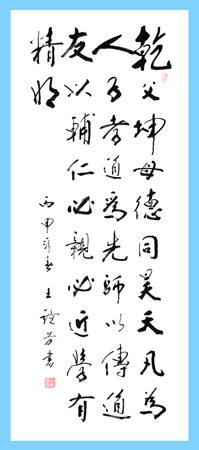 乾父坤母德同昊天凡為
人子孝道為先師以傳道
友以輔仁必親必近學有
精明
丙申春王芳書